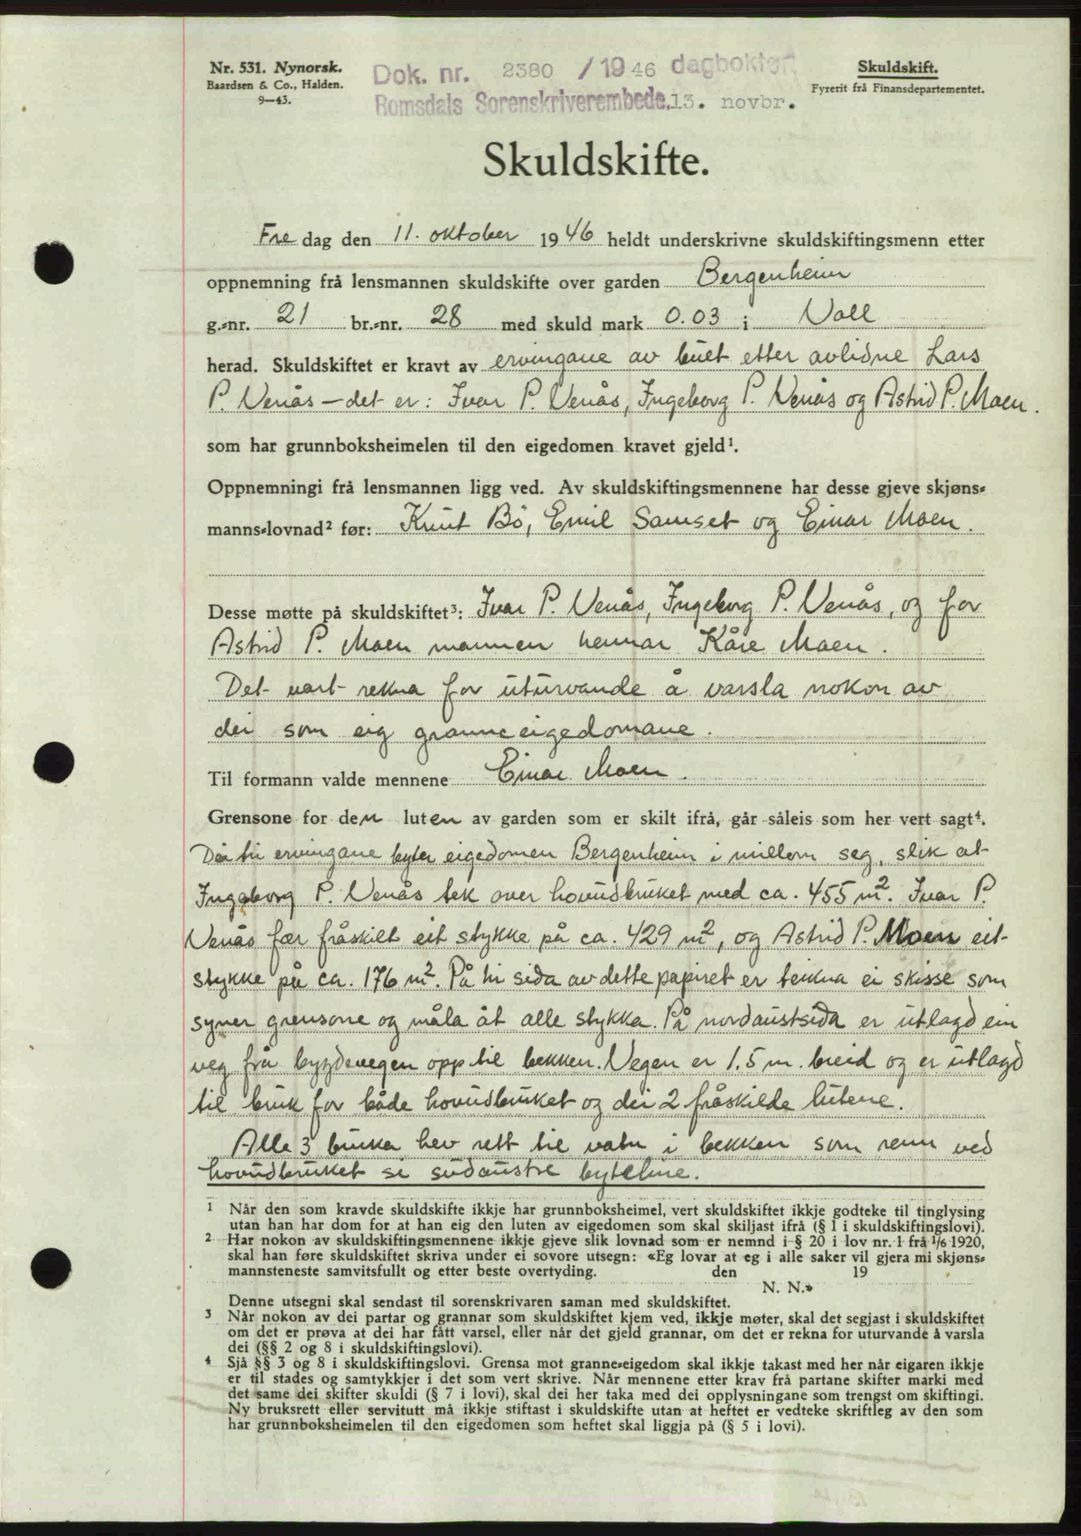 Nr. 531. Nynorsk.
Baardsen & Co., Halden.
9—43.
Dok. nr. 2380 / 1946 dagboktert
Romsdals Sorenskriverembede. 13. novbr.
Skuldskift.
Fyrerit frå Finansdepartementet.
Skuldskifte.
Fredag den 11. oktober 1946 heldt underskrivne skuldskiftingsmenn etter
oppnemning frå lensmannen skuldskifte over garden Bergenheim
g.-nr. 21 br.-nr. 28 med skuld mark 0.03 i Voll
herad. Skuldskiftet er kravt av ervingane av buet etter avlidne Lars
P. Venås — det er: Ivar P. Venås, Ingeborg P. Venås og Astrid P. Moen.
som har grunnboksheimelen til den eigedomen kravet gjeld¹.
Oppnemningi frå lensmannen ligg ved. Av skuldskiftingsmennene har desse gjeve skjøns-
manns-lovnad² før: Knut Bö, Emil Samset og Einar Moen.
Desse møtte på skuldskiftet³: Ivar P. Venås, Ingeborg P. Venås, og for
Astrid P. Moen mannen hennar Kåre Moen.
Det vart rekna for uturvande å varsla nokon av
dei som eig granneeigedomane.
Til formann valde mennene Einar Moen.
Grensone for den luten av garden som er skilt ifrå, går såleis som her vert sagt⁴.
Dei tri ervingane byter eigedomen Bergenheim i millom seg, slik at
Ingeborg P. Venås tek over hovudbruket med ca. 455 m². Ivar P.
Venås fær fråskilt eit stykke på ca. 429 m², og Astrid P. Moen eit
stykke på ca. 176 m². På hi sida av dette papiret er teikna ei skisse som
syner grensone og måla åt alle stykka. På nordaustsida er utlagd ein
veg frå bygdevegen opp til bekken. Vegen er 1.5 m. breid og er utlagd
til bruk for både hovudbruket og dei 2 fråskilde lutene.
Alle 3 bruka hev rett til vatn i bekken som renn ved
hovudbruket si sudaustre byteline.
1 Når den som kravde skuldskifte ikkje har grunnboksheimel, vert skuldskiftet ikkje godteke til tinglysing
utan han har dom for at han eig den luten av eigedomen som skal skiljast ifrå (§ 1 i skuldskiftingslovi).
2 Har nokon av skuldskiftingsmennene ikkje gjeve slik lovnad som er nemnd i § 20 i lov nr. 1 frå 1/6 1920,
skal han føre skuldskiftet skriva under ei sovore utsegn: «Eg lovar at eg i alle saker vil gjera mi skjøns-
mannsteneste samvitsfullt og etter beste overtyding. den 19
N. N.»
Denne utsegni skal sendast til sorenskrivaren saman med skuldskiftet.
3 Når nokon av dei partar og grannar som skuldskiftet kjem ved, ikkje møter, skal det segjast i skuldskiftet
om det er prøva at dei har fått varsel, eller når det gjeld grannar, om det er rekna for uturvande å varsla
dei (§§ 2 og 8 i skuldskiftingslovi).
4 Sjå §§ 3 og 8 i skuldskiftingslovi. Grensa mot granne-eigedom skal ikkje takast med her når eigaren ikkje
er til stades og samtykkjer i det som vert skrive. Når mennene etter krav frå partane skifter marki med
det same dei skifter skuldi (§ 7 i lovi), skal dei her taka med dei opplysningane som trengst om skiftingi.
Ny bruksrett eller servitutt må ikkje stiftast i skuldskifte utan at heftet er vedteke skriftleg av den som
har grunnboksheimelen til den eigedomen som heftet skal liggja på (§ 5 i lovi).